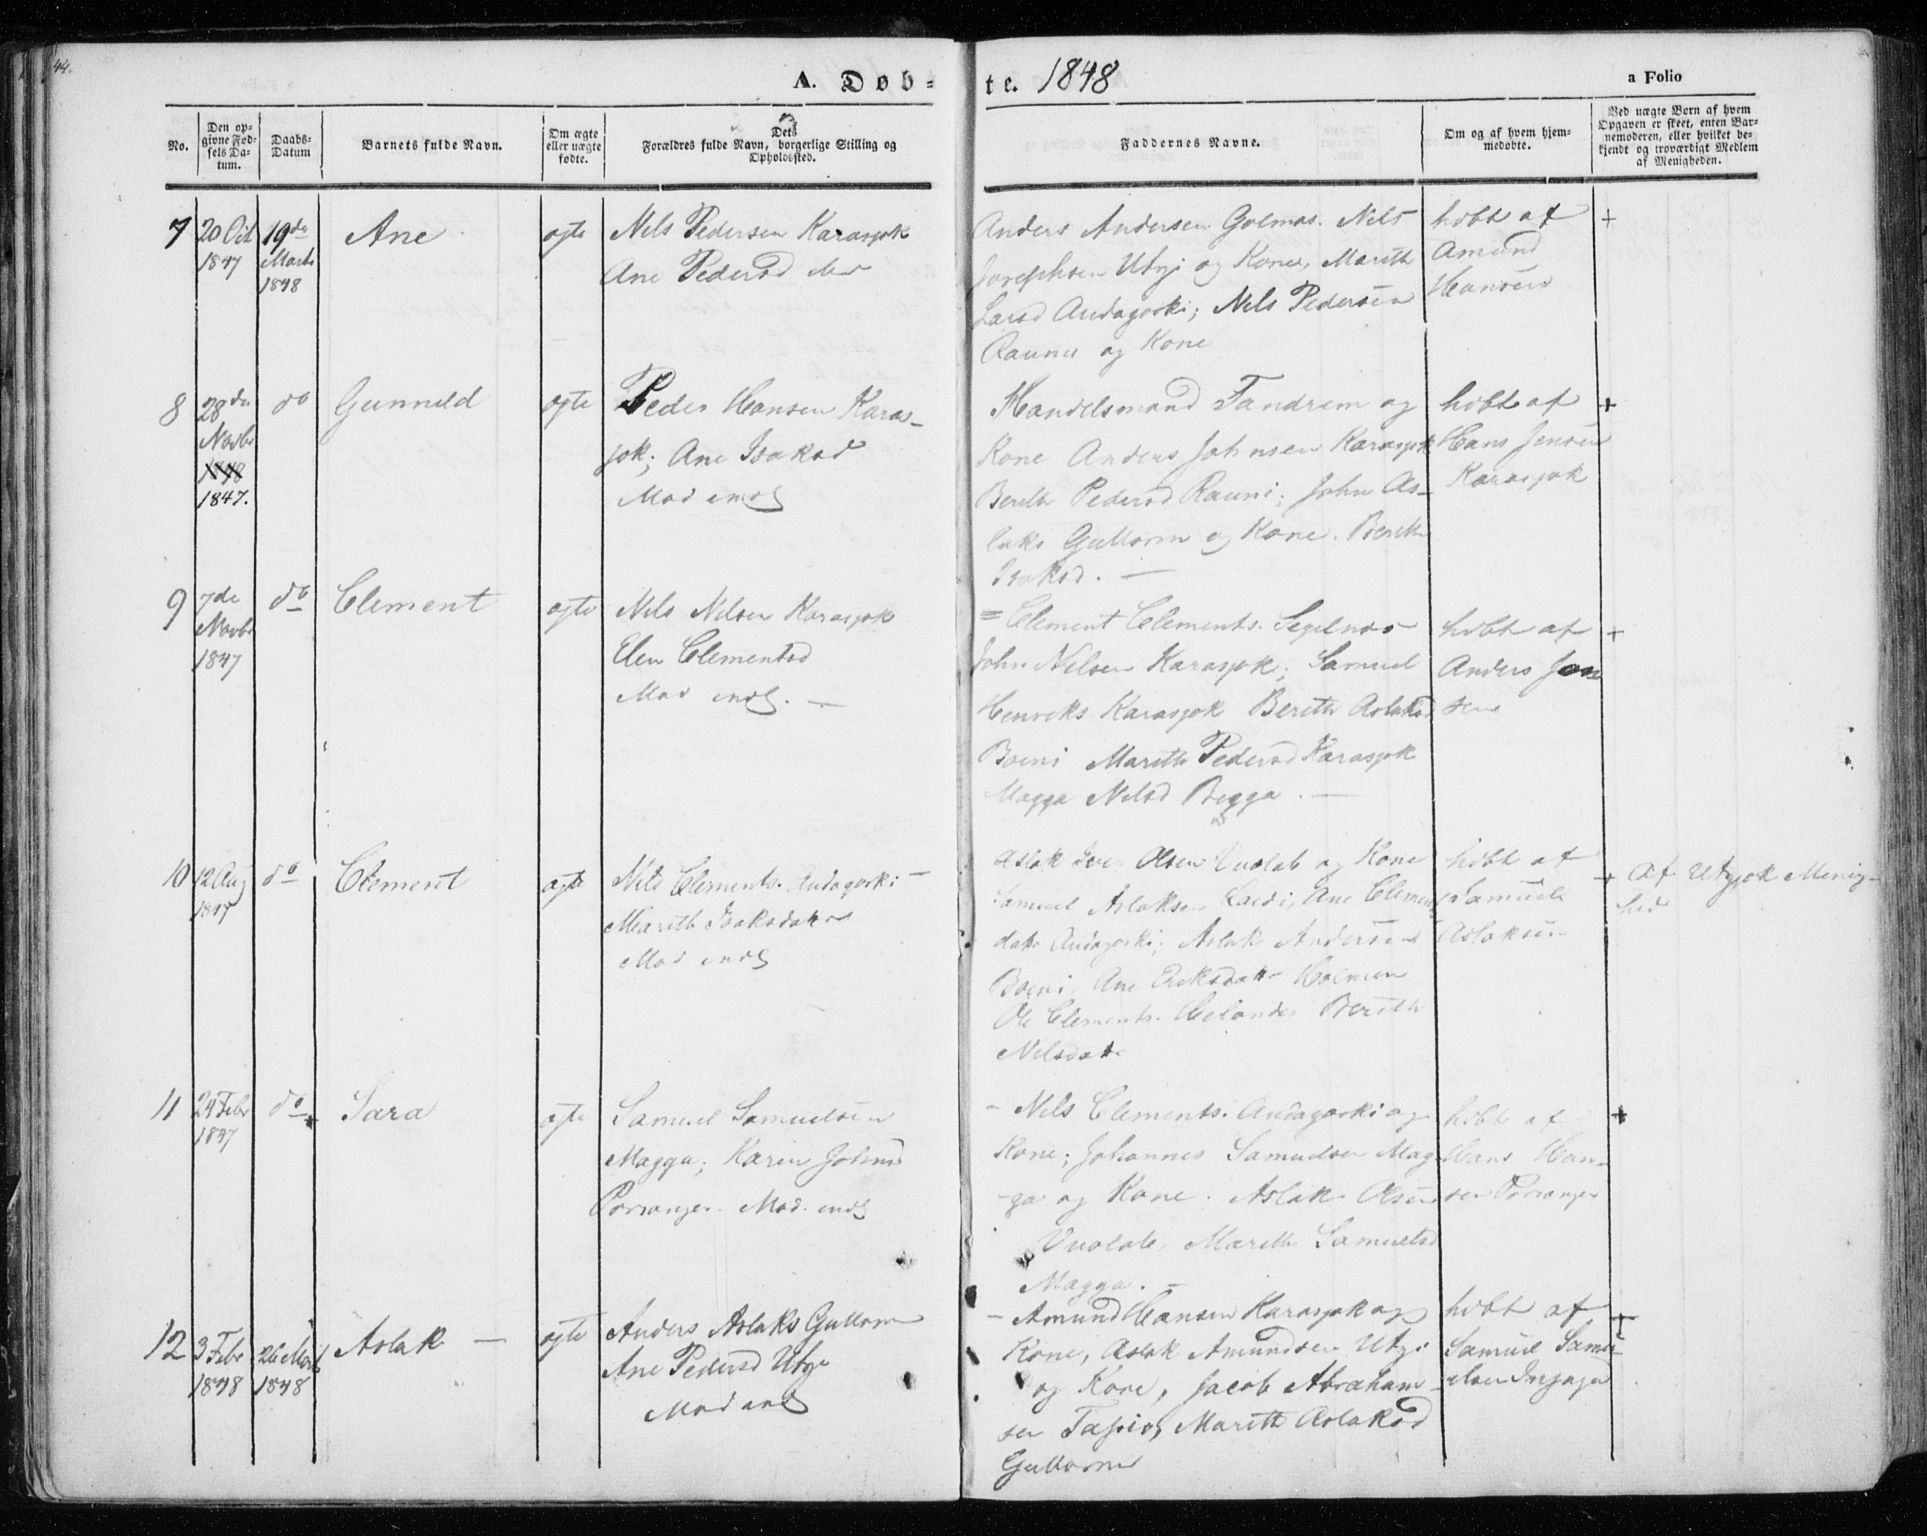 44.
A. Døb=
te. 1848
a Folio
No.
Den op-
givne Fød-
sels Da-
tum.
Daabs-
Datum
Barnets fulde Navn.
Om ægte
eller uægte
fødte.
Dets
Forældres fulde Navn, borgerlige Stilling og
Opholdssted.
Faddernes Navne.
Om og af hvem hjem-
medøbte.
Ved uægte Børn af hvem
Opgaven er skeet, enten Bar-
nemoderen, eller hvilket be-
kjendt og troværdigt Medlem
af Menigheden.
7
20 Oct
1847
19de
Marts
1848
Ane
ægte
Nels Pedersen Karasjok
Ane Pedersd
Anders Andersen Golmas. Nels
Josephsen Utsi og Kone, Marith
Larsd Audagoski; Nels Pedersen
Rauna og Kone
hdbt af
Amund
Hansen
+
8
28de
Novbr
1848
1847.
do
Gunneld
ægte
Peder Hansen Karas-
jok; Ane Isaksd
Mad indl
Handelsmand Fandrem og
Kone Anders Johnsen Karasjok
Berith Pedersd Rauni; John As-
laks Guttorm og Kone. Berith
Isaksd. —
hdbt af
Hans Jensen
Karasjok
+
9
7de
Novbr
1847
do
Clement
ægte
Nels Nelsen Karasjok
Elen Clementsd
Mad indl. —
= Clement Clements. Segelnes
John Nelsen Karasjok; Samuel
Henriks Karasjok Berith Aslaksd
Boini Marith Pedersd Karasjok
Magga Nelsd Begga. —
hdbt af
Anders Jen
sen
+
10
12 Aug
1847
do
Clement
ægte
Nils Clements. Audagoski —
Marith Isaksdatr
Mad indl
Aslak Olsen Vuolab og Kone
Samuel Aslaksen Laedi, Ane Clements
datr Audagoski; Aslak Andersen
Boini, Ane Eriksdatr Holmen
Ole Clements. Helander Berith
Nelsdatr
hdbt af
Samuel
Aslaksen
+
Af Utsjok Menig-
hed
11
24 Febr
1847
do
Sara
ægte
Samuel Samuelsen
Magga; Karen Johnsd
Porsanger. Mad. indl
— Nels Clements. Audagoski og
Kone; Johannes Samuelsen Mag-
ga og Kone. Aslak Olsen
Vuolab, Marith Samuelsd
Magga. —
hdbt af
Hans Han-
sen Porsanger
+
12
3 Febr
1848
26 Marts
1848
Aslak —
ægte
Anders Aslaks Guttorm
Ane Pedersd Utsi
Mad indl
— Amund Hansen Karasjok og
Kone, Aslak Amundsen Utsi
og Kone, Jacob Abraham-
sen Marith Aslaksd
Guttorm
hdbt af
Samuel Samu-
elsen
+